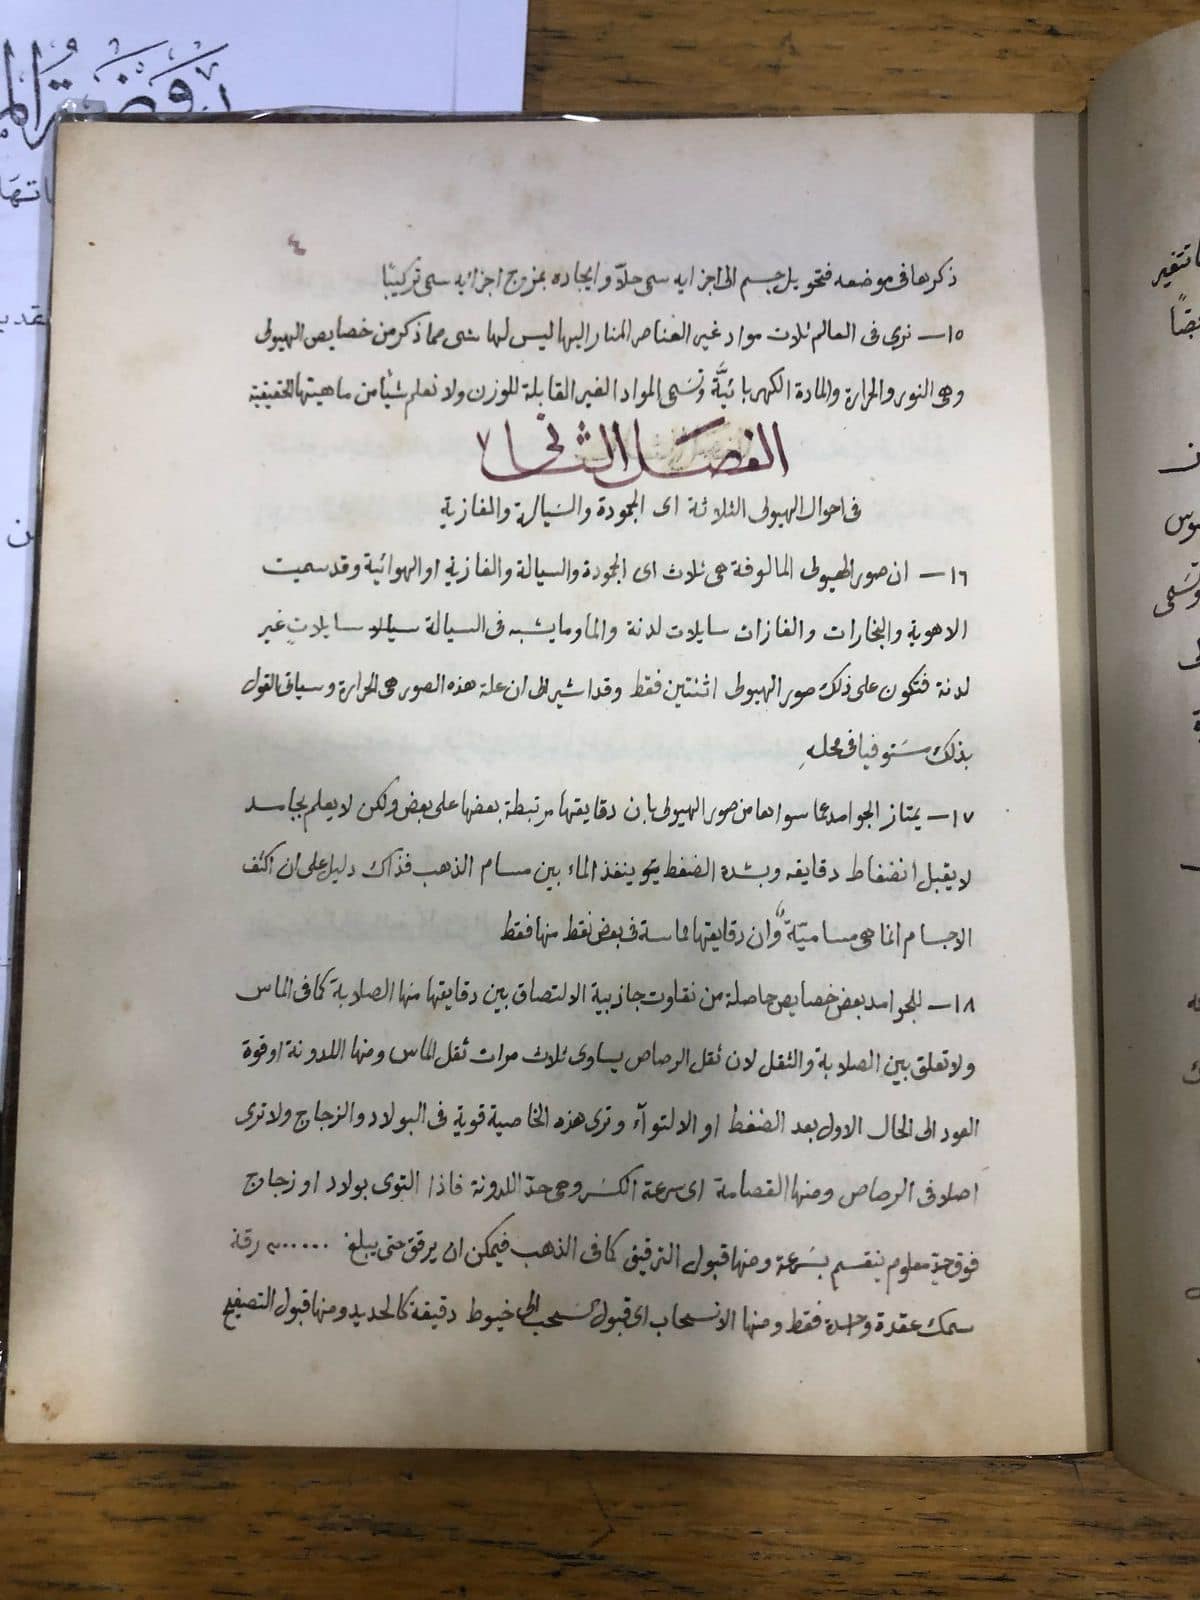 روضة
٤
ذكرها فى موضعه فتحويل جسم الى اجزايه سمى حلاً وايجاده بمزوج اجزايه سمى تركيبًا
١٥ — نرى فى العالم ثلاث مواد غير العناصر المنار اليها ليس لها شى مما ذكر من خصايص الهيولى
وهى النور والحرارة والمادة الكهربائيَّة وتسَمى المواد الغير القابلة للوزن ولا نعلم شيًا من ماهيتها الحقيقية
الفصل الثانى
فى احوال الهيولى الثلاثة اى الجمودة والسَيالة والغازية
١٦ — ان صور الهيولى المالوفة هى ثلاث اى الجمودة والسيالة والغازية او الهوائية وقد سميت
الاهوية والبخارات والغازات سايلات لدنة والما وما يشبه فى السيالة سيالا سايلاتٍ غير
لدنة فتكون على ذلك صور الهيولى اثنتين فقط وقد اشير الى ان علة هذه الصور هى الحرارة وسياتى القول
بذلك سَتوفيا فى محلهِ
١٧ — يمتاز الجوامد عما سواها من صور الهيولى بان دقايقها مرتبطة بعضها على بعض ولكن لا يعلم بجامد
لا يقبل انضغاط دقايقه وبشدة الضغط ينفذ الماء بين مسام الذهب فذاك دليل على ان اكثف
الاجسام انما هى مساميّة وان دقايقها مماسة فى بعض نقط منها فقط
١٨ — للجوامد بعض خصايص حاصلة من تفاوت جاذبية الالتصاق بين دقايقها منها الصلابة كما فى الماس
ولا تعلق بين الصلابة والثقل لان ثقل الرصاص يساوى ثلاث مرات ثقل الماس ومنها اللدونة او قوة
العود الى الحال الاول بعد الضغط او الالتوآء وترى هذه الخاصية قوية فى البولاد والزجاج ولا ترى
اصلا فى الرصاص ومنها القصامة اى سرعة الكسَر وهى حدّ اللدونة فاذا التوى بولاد او زجاج
فوق حدٍ معلوم ينقسم بسَرعة ومنها قبول الترقيق كما فى الذهب فيمكن ان يرقق حتى يبلغ ٣٠٠٠٠٠ رقة
سمك عقدة واحدة فقط ومنها الانسحاب اى قبول السَحب الى خيوط دقيقة كالحديد ومنها قبول التصفيح